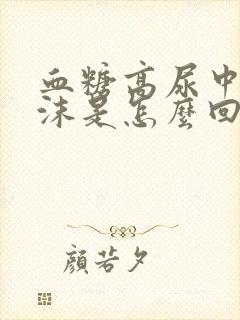 血糖高尿中
沫是怎麼回
顏若夕